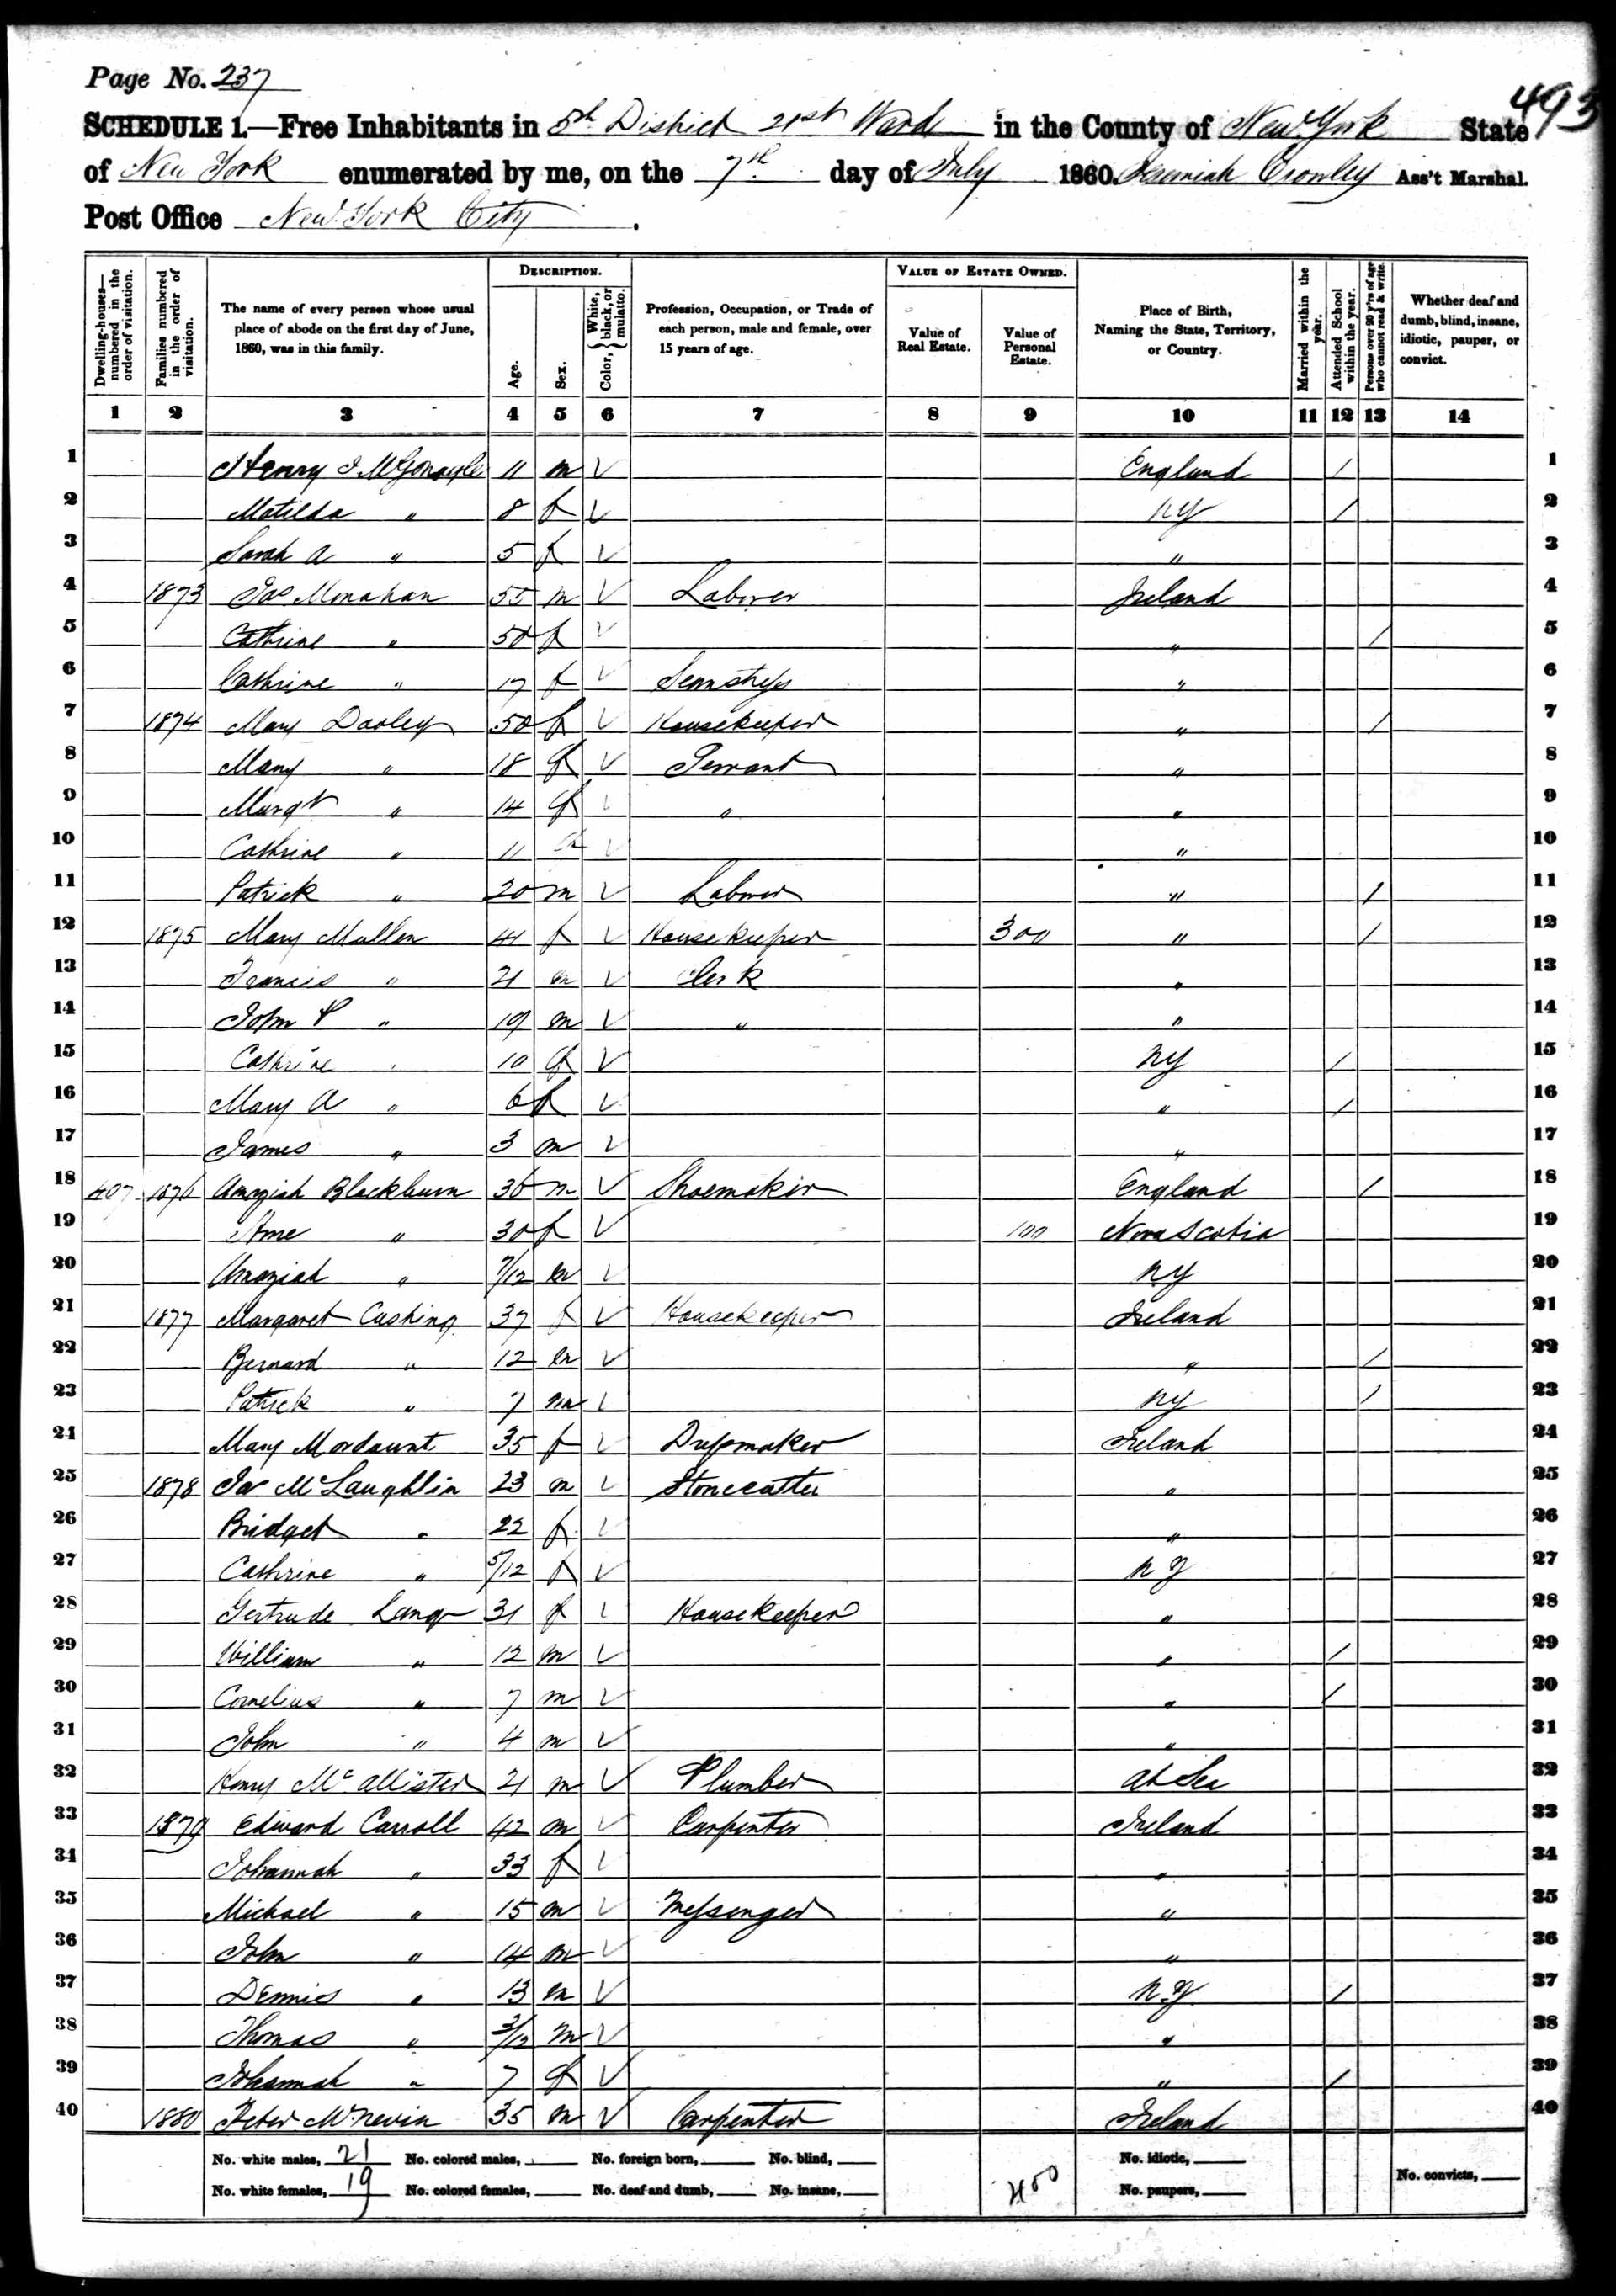 Page No. 237
493
SCHEDULE 1.—Free Inhabitants in 5th District 21st Ward in the County of New York State
of New York enumerated by me, on the 7th day of July 1860. Jeremiah Crowley Ass't Marshal.
Post Office New York City.
Dwelling-houses—numbered in the order of visitation.
Families numbered in the order of visitation.
The name of every person whose usual place of abode on the first day of June, 1860, was in this family.
DESCRIPTION.
Age.
Sex.
Color, { White, black, or mulatto.
Profession, Occupation, or Trade of each person, male and female, over 15 years of age.
VALUE OF ESTATE OWNED.
Value of Real Estate.
Value of Personal Estate.
Place of Birth, Naming the State, Territory, or Country.
Married within the year.
Attended School within the year.
Persons over 20 y'rs of age who cannot read & write.
Whether deaf and dumb, blind, insane, idiotic, pauper, or convict.
1 2 3 4 5 6 7 8 9 10 11 12 13 14
1 Henry J 11 m √ England / 1
2 Matilda " 8 f √ NY / 2
3 Sarah A " 5 f √ " 3
4 1873 Jas Monahan 55 m √ Laborer Ireland 4
5 Cathrine " 50 f √ " / 5
6 Cathrine " 17 f √ Seamstress " 6
7 1874 Mary Dooley 50 f √ Housekeeper " / 7
8 Mary " 18 f √ Servant " 8
9 Margt " 14 f √ " " 9
10 Cathrine " 11 √ " 10
11 Patrick " 20 m √ Laborer " / 11
12 1875 Mary Mullen 41 f √ Housekeeper 300 " / 12
13 Francis " 21 m √ Clerk " 13
14 John P " 19 m √ " " 14
15 Cathrine " 10 f √ NY / 15
16 Mary A " 6 f √ " / 16
17 James " 3 m √ " 17
18 407 1876 Amaziah Blackburn 36 m √ Shoemaker England / 18
19 " 30 f √ 100 Nova Scotia 19
20 Amaziah " 7/12 m √ NY 20
21 1877 Margaret Cushing 37 f √ Housekeeper Ireland 21
22 Bernard " 12 m √ " / 22
23 Patrick " 7 m √ NY / 23
24 Mary Mordaunt 35 f √ Dressmaker Ireland 24
25 1878 Jas McLaughlin 23 m √ Stonecutter " 25
26 Bridget " 22 f √ " 26
27 Cathrine " 5/12 f √ NY 27
28 Gertrude Lang 31 f √ Housekeeper " 28
29 William " 12 m √ " / 29
30 Cornelius " 7 m √ " / 30
31 John " 4 m √ " 31
32 Henry McAllister 21 m √ Plumber At Sea 32
33 1879 Edward Carroll 42 m √ Carpenter Ireland 33
34 Johannah " 33 f √ " 34
35 Michael " 15 m √ Messenger " 35
36 John " 14 m √ " 36
37 Dennis " 13 m √ N.Y / 37
38 Thomas " 3/12 m √ " 38
39 Johannah " 7 f √ " / 39
40 1880 Peter McNevin 35 m √ Carpenter Ireland 40
No. white males, 21 No. colored males, No. foreign born, No. blind, No. idiotic,
No. white females, 19 No. colored females, No. deaf and dumb, No. insane, 400 No. paupers, No. convicts,